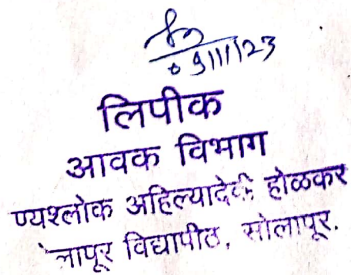 9/11/23
लिपीक
आवक विभाग
ण्यश्लोक अहिल्यादेवी होळकर
लापूर विद्यापीठ, सोलापूर.